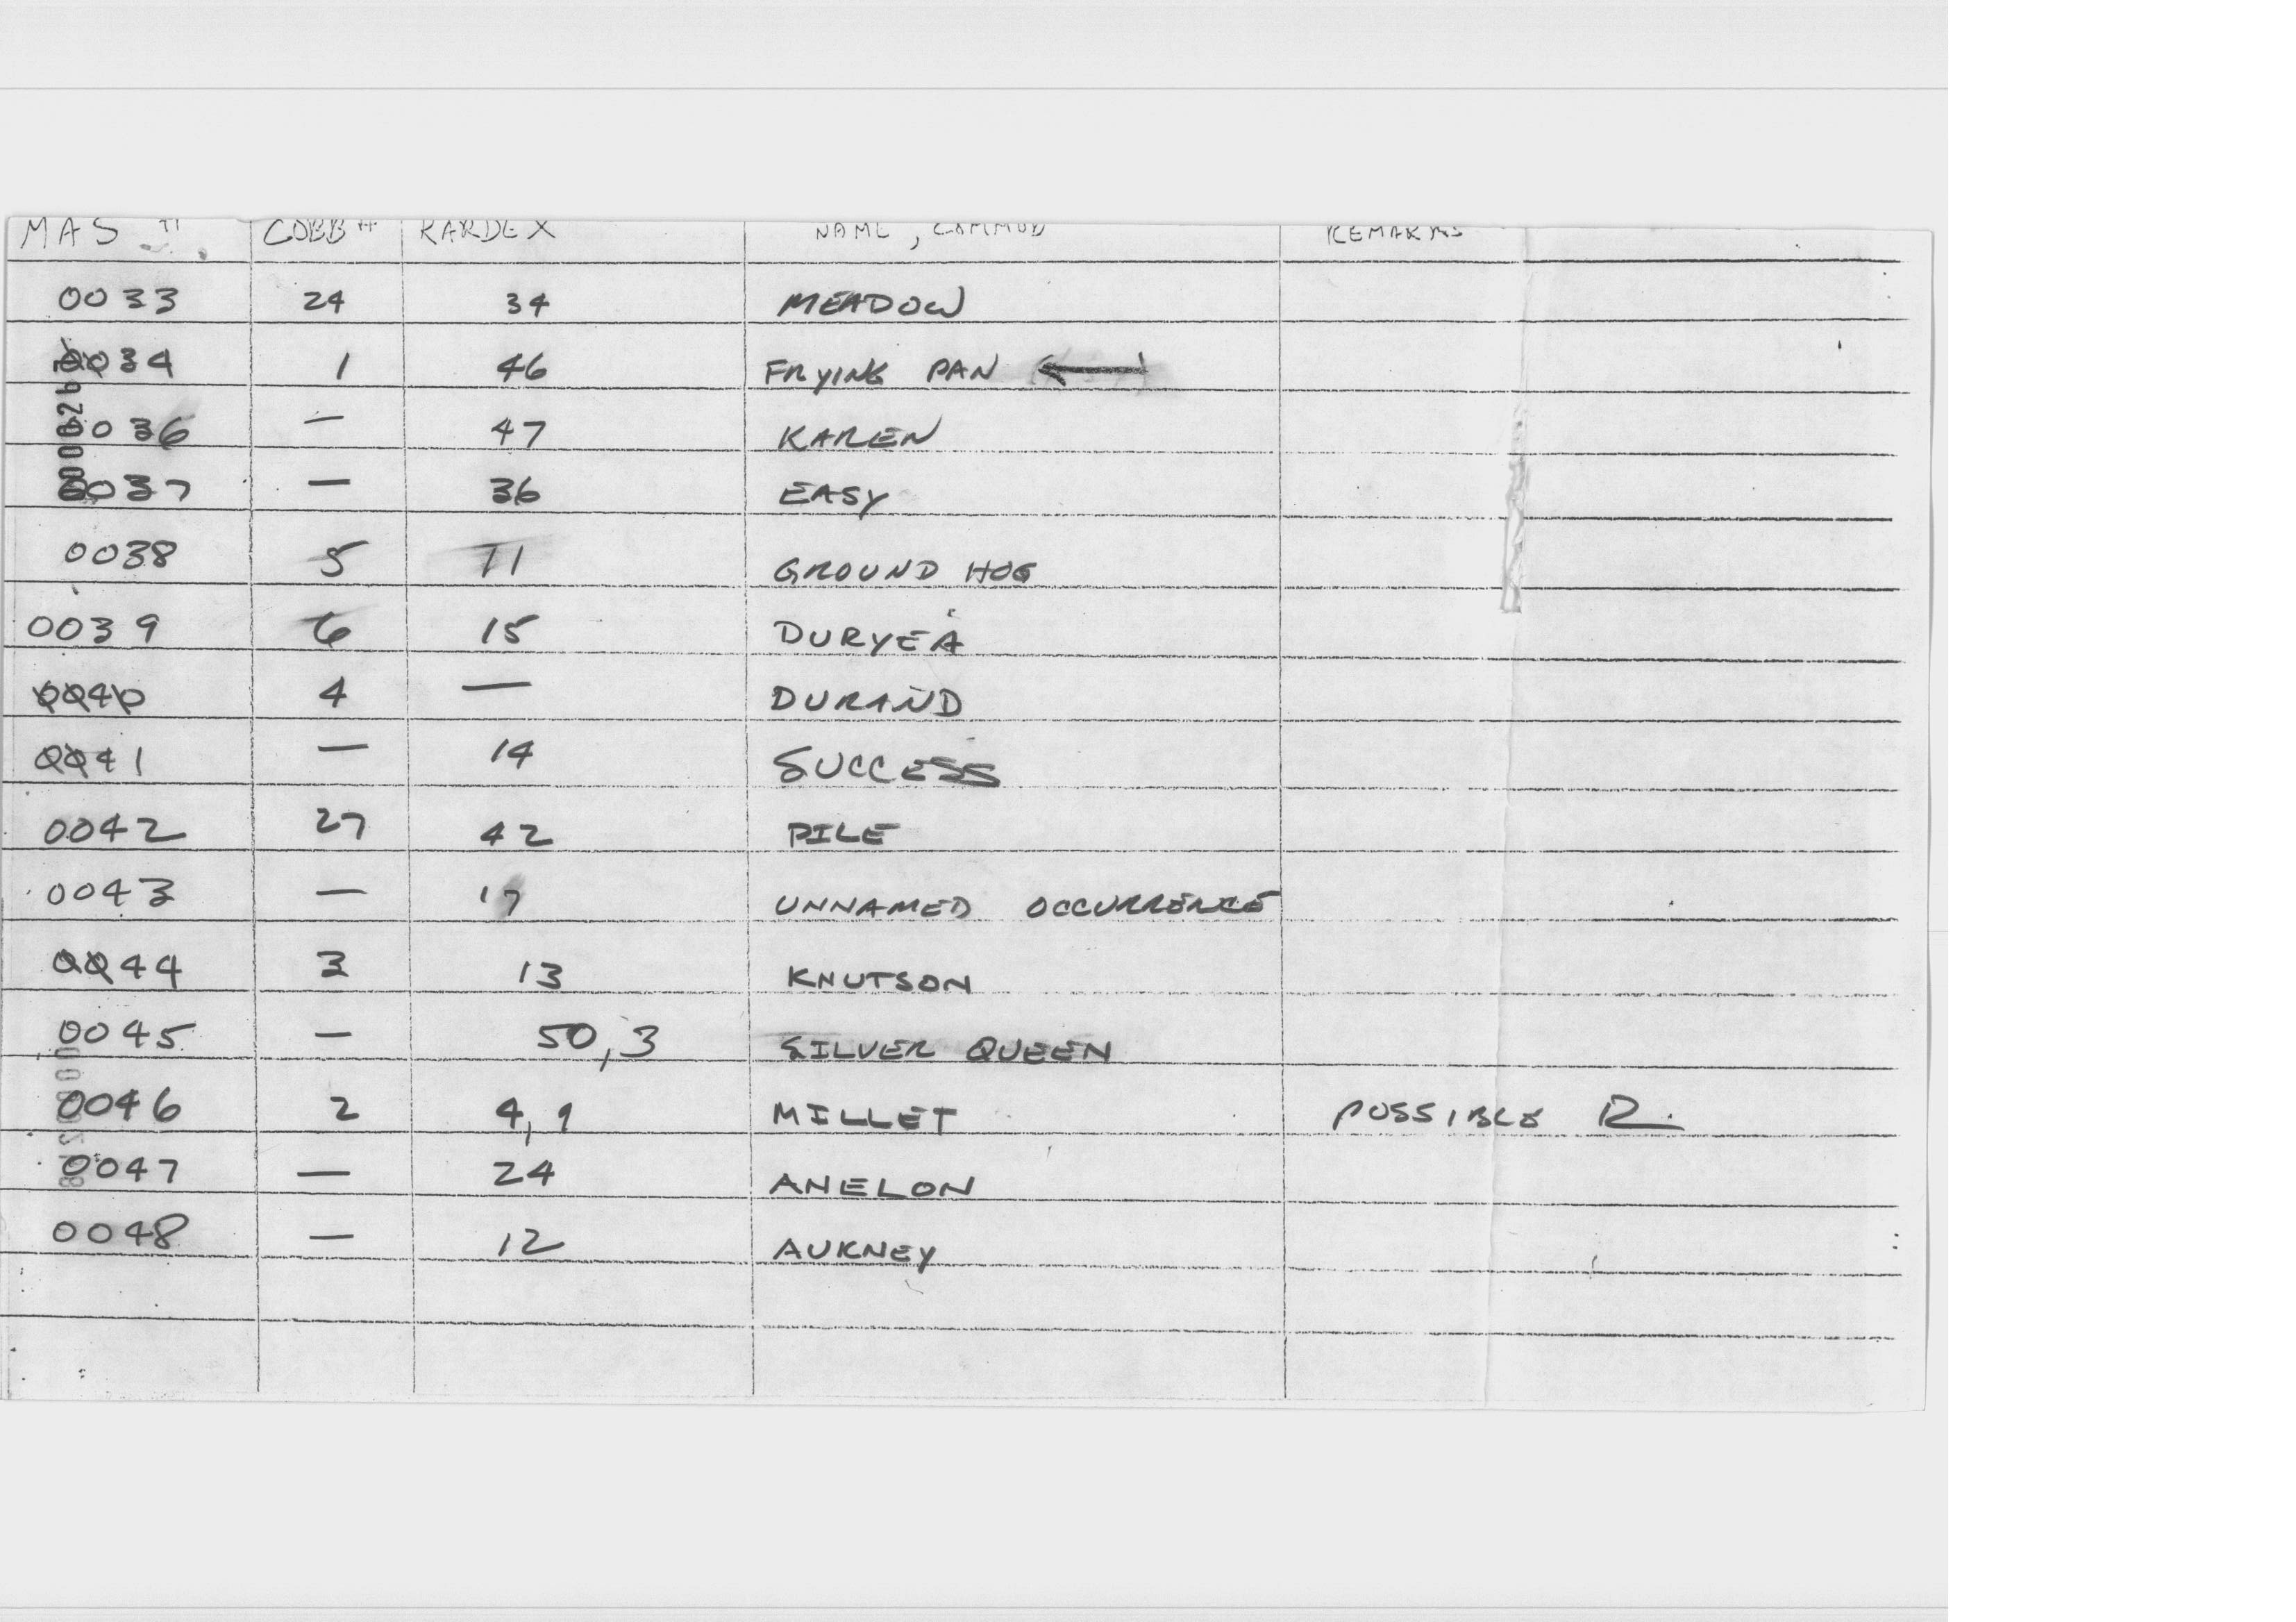 MAS # COBB # KARDEX NAME, COMMOD REMARKS
0033 24 34 MEADOW
0034 1 46 FRYING PAN ←
0036 — 47 KAREN
0037 — 36 EASY
0038 5 11 GROUND HOG
0039 6 15 DURYEA
0040 4 — DURAND
0041 — 14 SUCCESS
0042 27 42 PILE
0043 — 17 UNNAMED OCCURRENCE
0044 3 13 KNUTSON
0045 — 50,3 SILVER QUEEN
0046 2 4,9 MILLET POSSIBLE R.
0047 — 24 ANELON
0048 — 12 AUKNEY